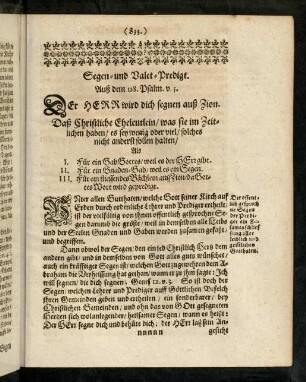 (833.)
Segen- und Valet-Predigt.
Auß dem 128. Psalm. v. 5.
Der HERR wird dich segnen auß Zion.
Daß Christliche Eheleutlein / was sie im Zeit-
lichen haben / es sey wenig oder viel / solches
nicht anderst sollen halten /
Als
I. Für ein Gab Gottes / weil es der HErr gibt.
II. Für ein Gnaden-Gab / weil es ein Segen.
III. Für ein fliessendes Bächlein auß Zion / da Got-
tes Wort wird gepredigt.
Unter allen Gutthaten / welche Gott seiner Kirch auff
Erden durch ordentliche Lehrer und Prediger ertheilt /
ist der vielfältig von ihnen offentlich gesprochene Se-
gen darumb die gröste / weil in demselben alle Leibs
und der Seelen Gnaden und Gaben werden zusamen gefaßt /
und begriffen.
Dann obwol der Segen / den ein jed Christlich Hertz dem
andern gibt / und in demselben von Gott alles guts wünschet /
auch ein kräfftiger Segen ist / welchen Gott zugewehren dem A-
braham die Verheissung hat gethan / wann er zu ihm sagt: Ich
will segnen die / die dich segnen: Genes. 12. v. 3. So ist doch
der Segen / welchen Lehrer und Prediger auß Göttlichen Befelch
ihren Gemeinden geben und ertheilen / ein sonderbarer / bey
Christlichen Gemeinden / und ohn das von GOtt gesegneten
Hertzen viel
Segen / wann es heißt:
Der HErr segne dich und behüte dich; der HErr laß sein An-
nnnnn
gesicht
Der offent-
lich gesproch-
ne Segen
der Predi-
ger ein